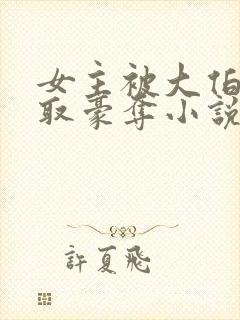 女主被大伯
取豪夺小說
許夏飛